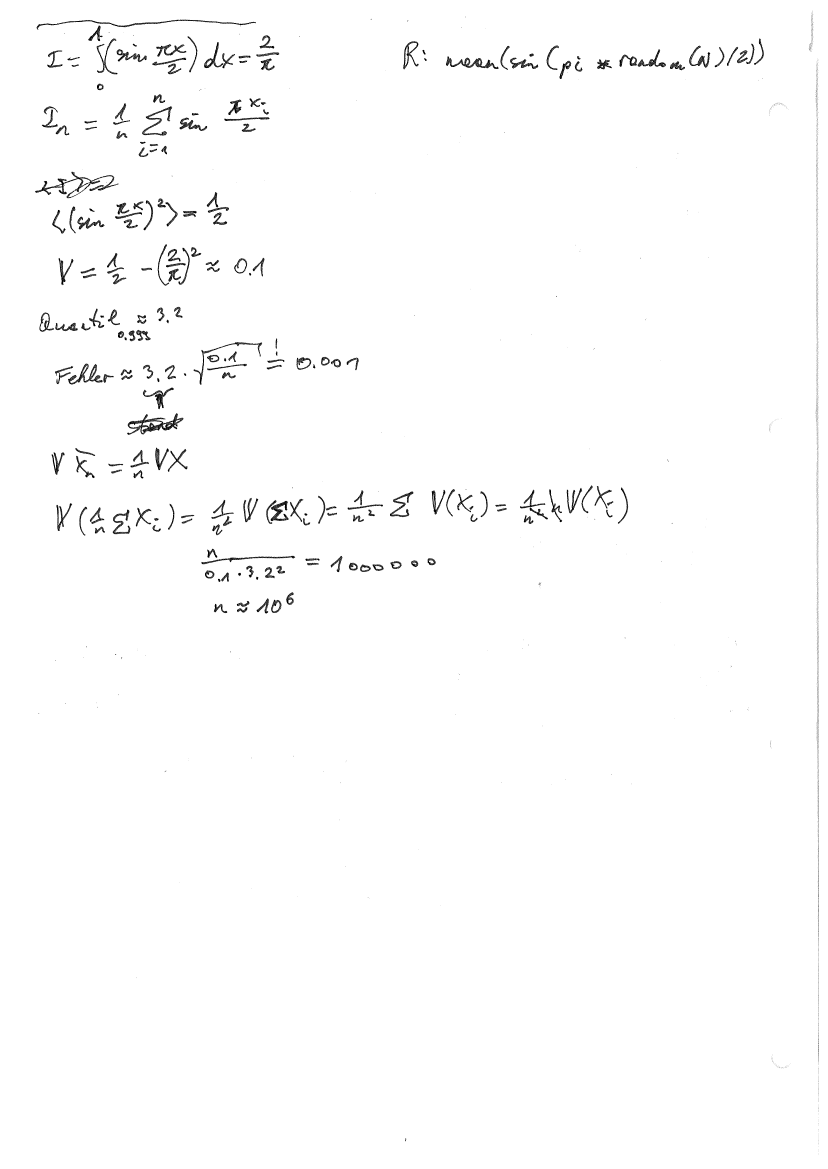 I = ∫₀¹ (sin πx/2) dx = 2/π
R: mean(sin(pi * random(N)/2))
Iₙ = 1/n Σᵢ₌₁ⁿ sin πxᵢ/2
⟨(sin πx/2)²⟩ = 1/2
V = 1/2 − (2/π)² ≈ 0.1
Quantil₀.₉₉₉ ≈ 3.2
Fehler ≈ 3.2 · √(0.1/n) =! 0.001
V X̄ₙ = 1/n VX
V(1/n ΣXᵢ) = 1/n² V(ΣXᵢ) = 1/n² Σ V(Xᵢ) = 1/n² n V(Xᵢ)
n/(0.1 · 3.2²) = 1000000
n ≈ 10⁶